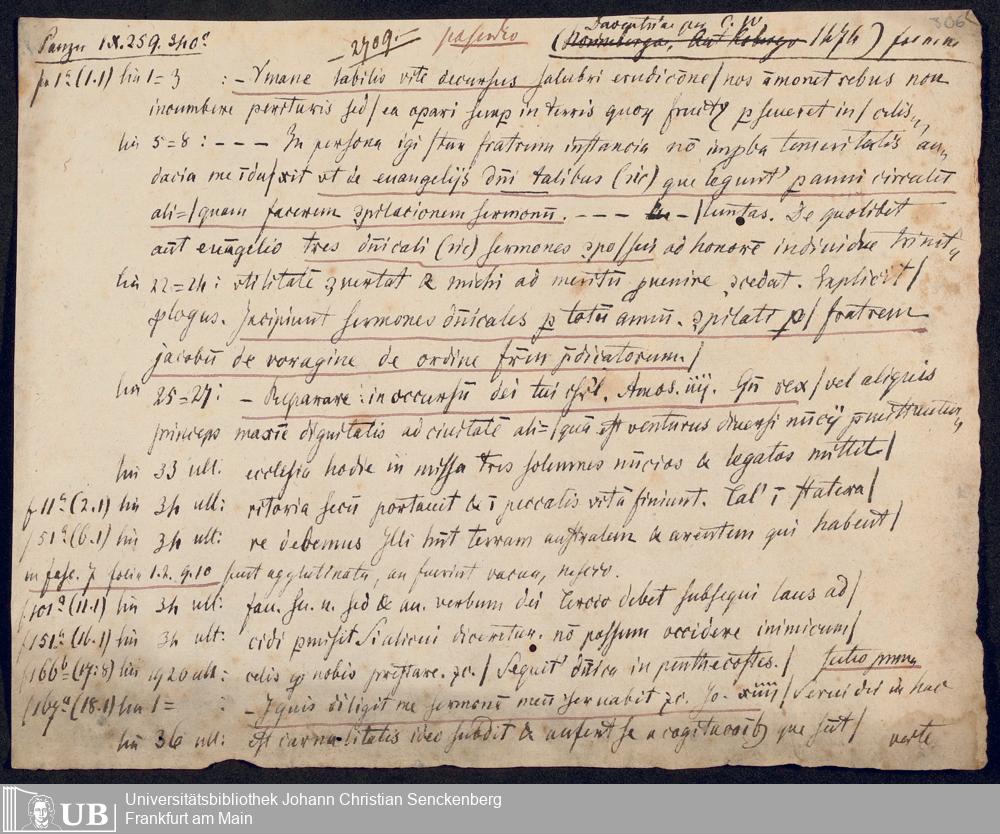 Panzer IX. 259. 340ᶜ 2709.- (Norimberga, Ant Koberger 1474) 306
Daventriae per C. W
f 1ᵃ (1.1) lin 1=3 : - Ymane labilis vite decursus salubri erudicōne/nos āmonet rebus non
incumbere perituris sed/ea opari semp in terris quoꝝ fructꝰ pseueret in/celis„
lin 5=8 : - - - In persona igi/tur fratrum instancia nō impba temeritatis au„
dacia me īdu/xit vt de euangelijs dn̄i talibus (sic) que legunt' p anni circulū
ali=/quam facerem ꝯpilacionem sermonū. - - - - /luntas. De quolibet
aūt euāgelio tres dn̄icali (sic) sermones ꝯpo/sui ad honorē indiuidue trinit„
lin 22=24: vtilitatē ꝯuertat & michi ad meritū puenire ꝯcedat. Explicit/
plogus. Incipiunt sermones dn̄icales p totū annū. ꝯpilati p/fratrem
jacobū de voragine de ordine frm p̄dicatorum/
lin 25=27: - Preparare in occursū dei tui isrl. Amos. iiij. Cū rex/vel aliquis
princeps maxīe dignitatis ad ciuitatē ali=/quā est venturus diuersi nūcij pmittuntur„
lin 33 ult: ecclesia hodie in missa tres solennes nūcios & legatos mittit/
f 11ᵃ (2.1) lin 34 ult: ritoria secū portauit & ī peccatis vitā finiunt. Tal' ī statera/
f 51ᵃ (6.1) lin 34 ult: re debemus Illi hn̄t terram australem & arentem qui habent/
in fasc. 7 folia 1.2. 9.10 sunt agglutinata, an fuerint vacua, nescio.
f 101ᵃ (11.1) lin 34 ult: fau. su. u. sed & au. verbum dei Tercio debet subsequi laus ad/
f 151ᵃ (16.1) lin 34 ult: cidi pmisit Si alicui diceretur. nō possum occidere inimicum/
f 166ᵇ (17:8) lin 19 20 ult: celis nobis prestare. ꝛc./Sequit' dn̄ica in penthecostes./
f 167ᵃ (18.1) lin 1= : - I quis diligit me sermonē meū seruabit ꝛc. Jo. xiiij/Serui dei in hac
lin 36 ult: est carnalitatis ideo subdit & aufert se a cogitacōibꝫ que sūt/ verte
UB Universitätsbibliothek Johann Christian Senckenberg
Frankfurt am Main